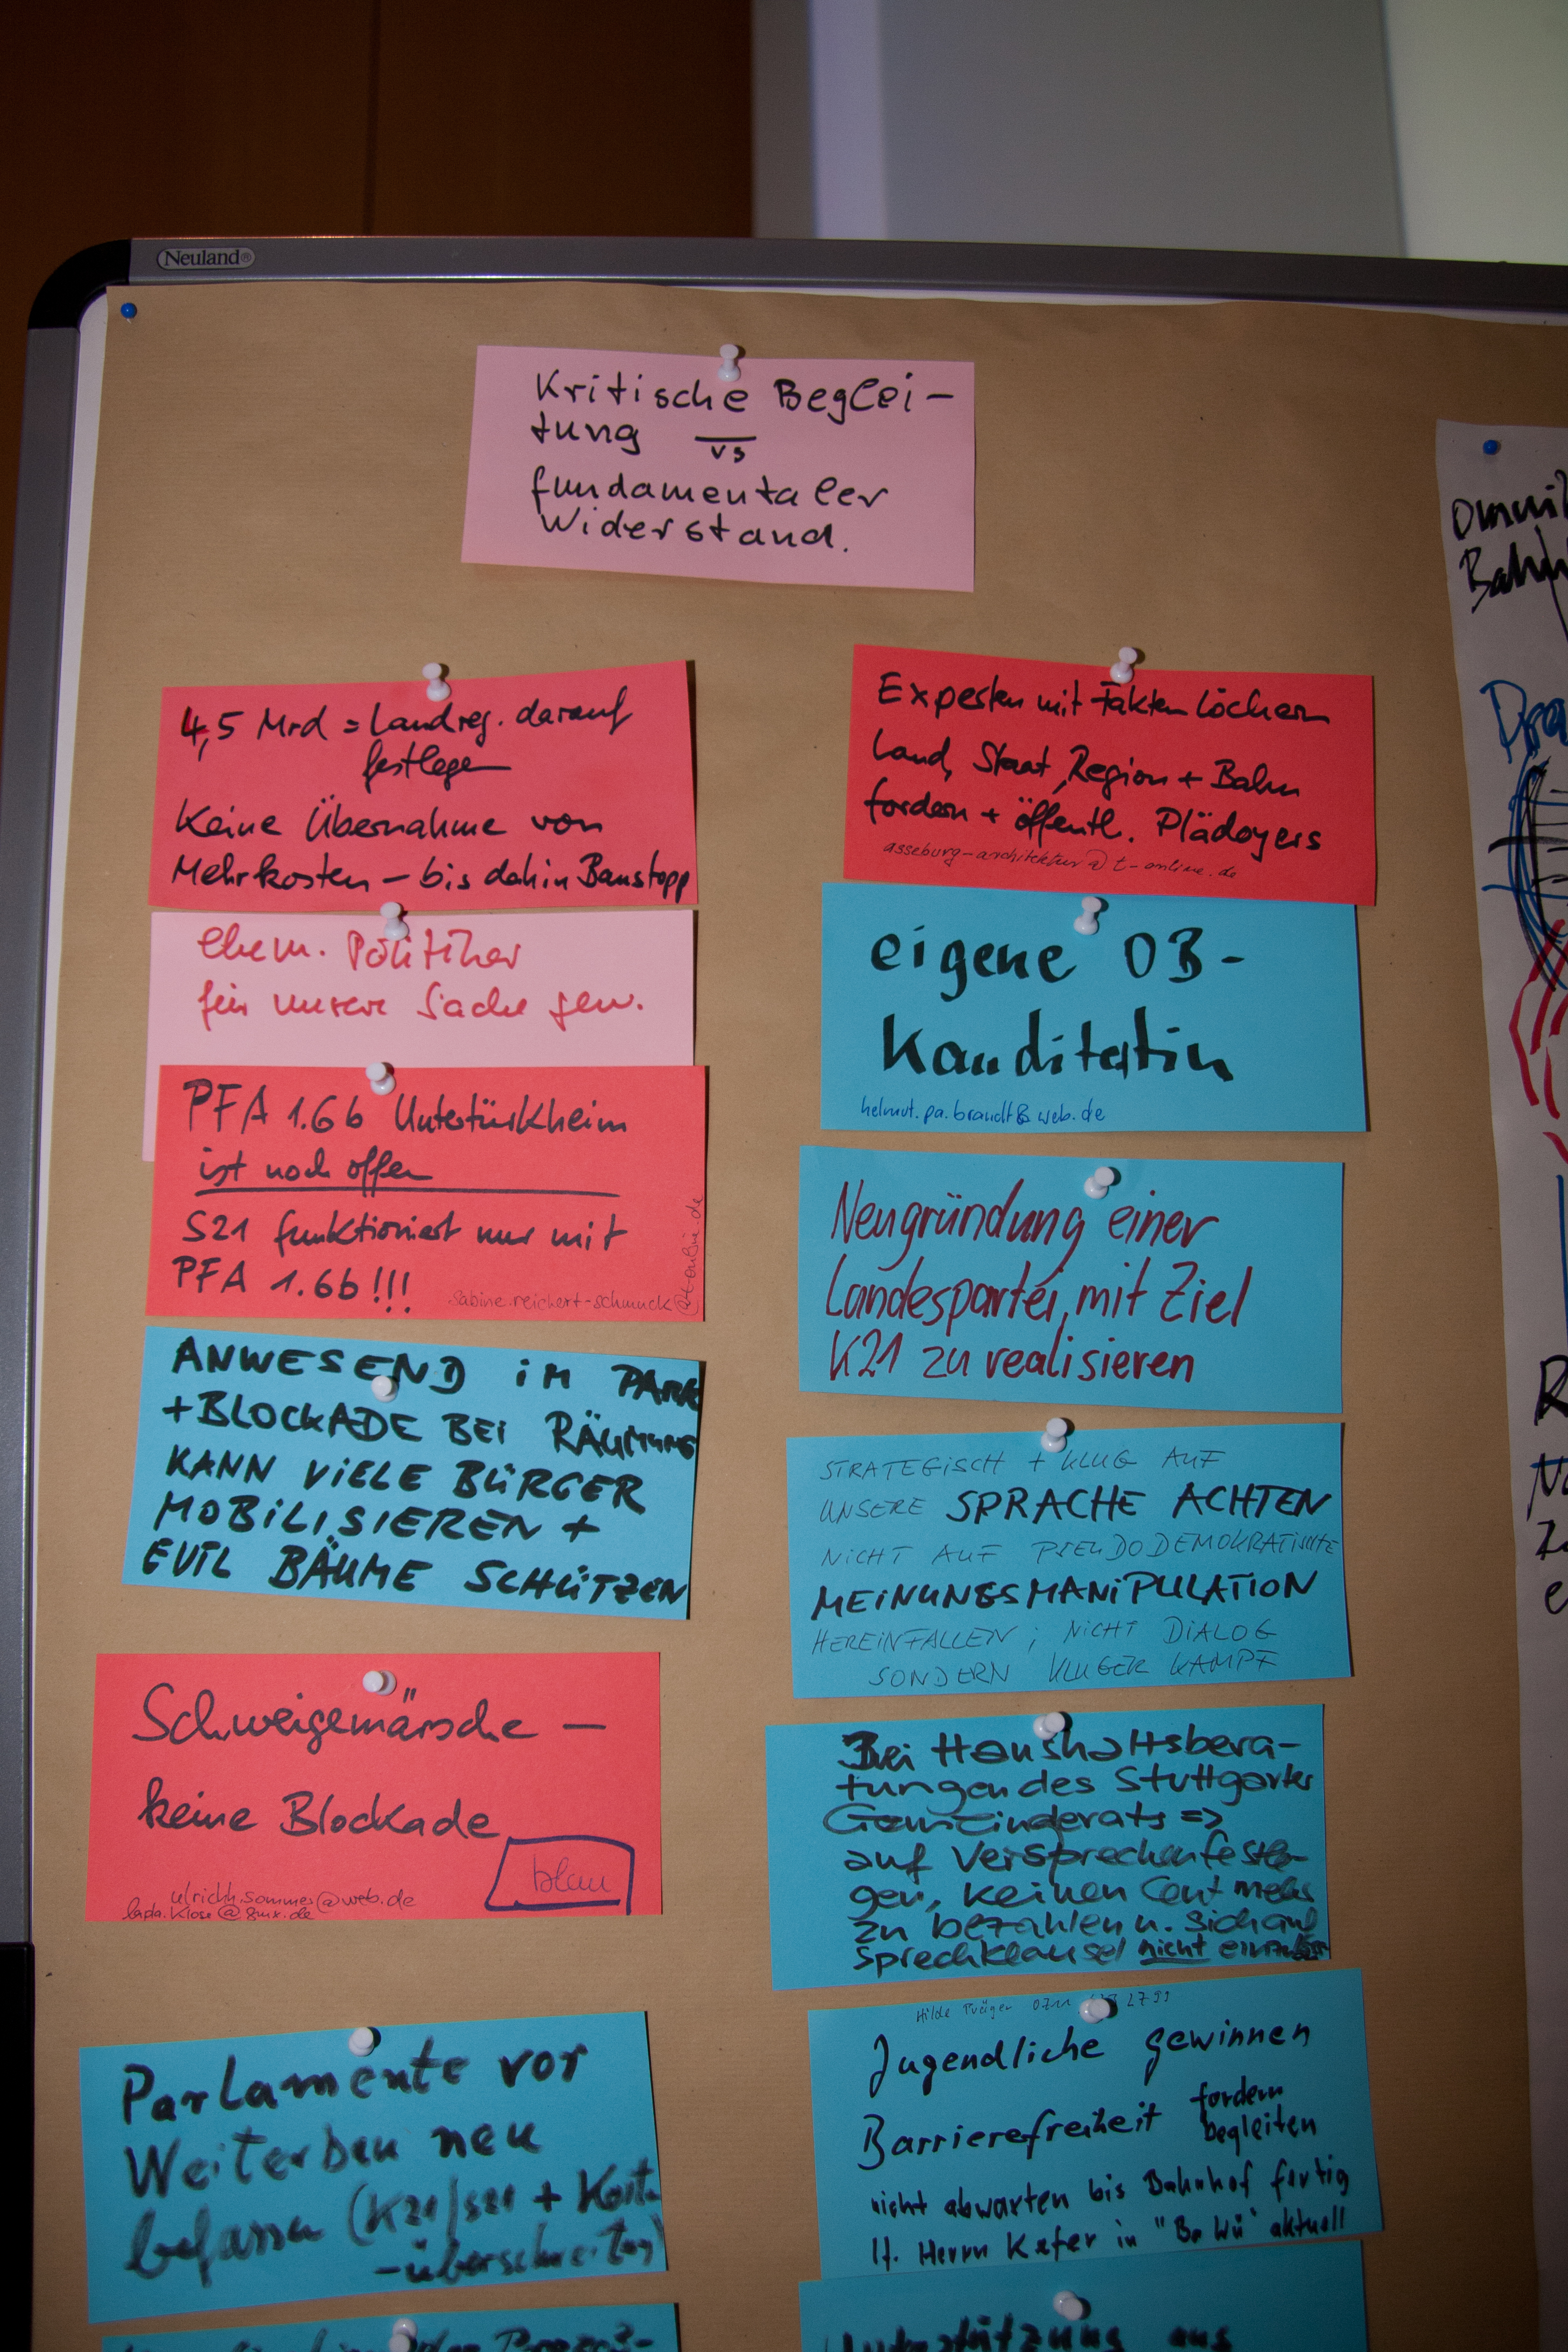 Neuland®
Kritische Beglei-
tung vs
fundamentaler
Widerstand.
4,5 Mrd = Landreg. darauf
festlegen
Keine Übernahme von
Mehrkosten – bis dahin Baustopp
ehem. Politiker
für unsere Sache gew.
PFA 1.6b Untertürkheim
ist noch offen
S21 funktioniert nur mit
PFA 1.6b!!!
sabine.reichert-schmuck
@t-online.de
ANWESEND IM PARK
+BLOCKADE BEI RÄUMUNG
KANN VIELE BÜRGER
MOBILISIEREN +
EVTL BÄUME SCHÜTZEN
Schweigemärsche –
keine Blockade
blau
ulrichh.sommer@web.de
lada.klose@gmx.de
Parlamente vor
Weiterbau neu
befassen (K21/S21 + Kosten
-überschreitung)
Experten mit Fakten löchern
Land, Staat, Region + Bahn
fordern + öffentl. Plädoyers
asseburg-architektur@t-online.de
eigene OB-
Kanditatin
helmut.pa.brandt@web.de
Neugründung einer
Landespartei, mit Ziel
K21 zu realisieren
STRATEGISCH + KLUG AUF
UNSERE SPRACHE ACHTEN
NICHT AUF PSEUDODEMOKRATISCHE
MEINUNGSMANIPULATION
HEREINFALLEN; NICHT DIALOG
SONDERN KLUGER KAMPF
Bei Haushaltsbera-
tungen des Stuttgarter
Gemeinderats =>
auf Versprechen festle-
gen, keinen Cent mehr
zu bezahlen u. sich auf
Sprechklausel nicht
Hilde Präger 0711 2799
Jugendliche gewinnen
Barrierefreiheit fordern
begleiten
nicht abwarten bis Bahnhof fertig
lt. Herrn Kefer in "Ba Wü" aktuell
Unterstützung aus